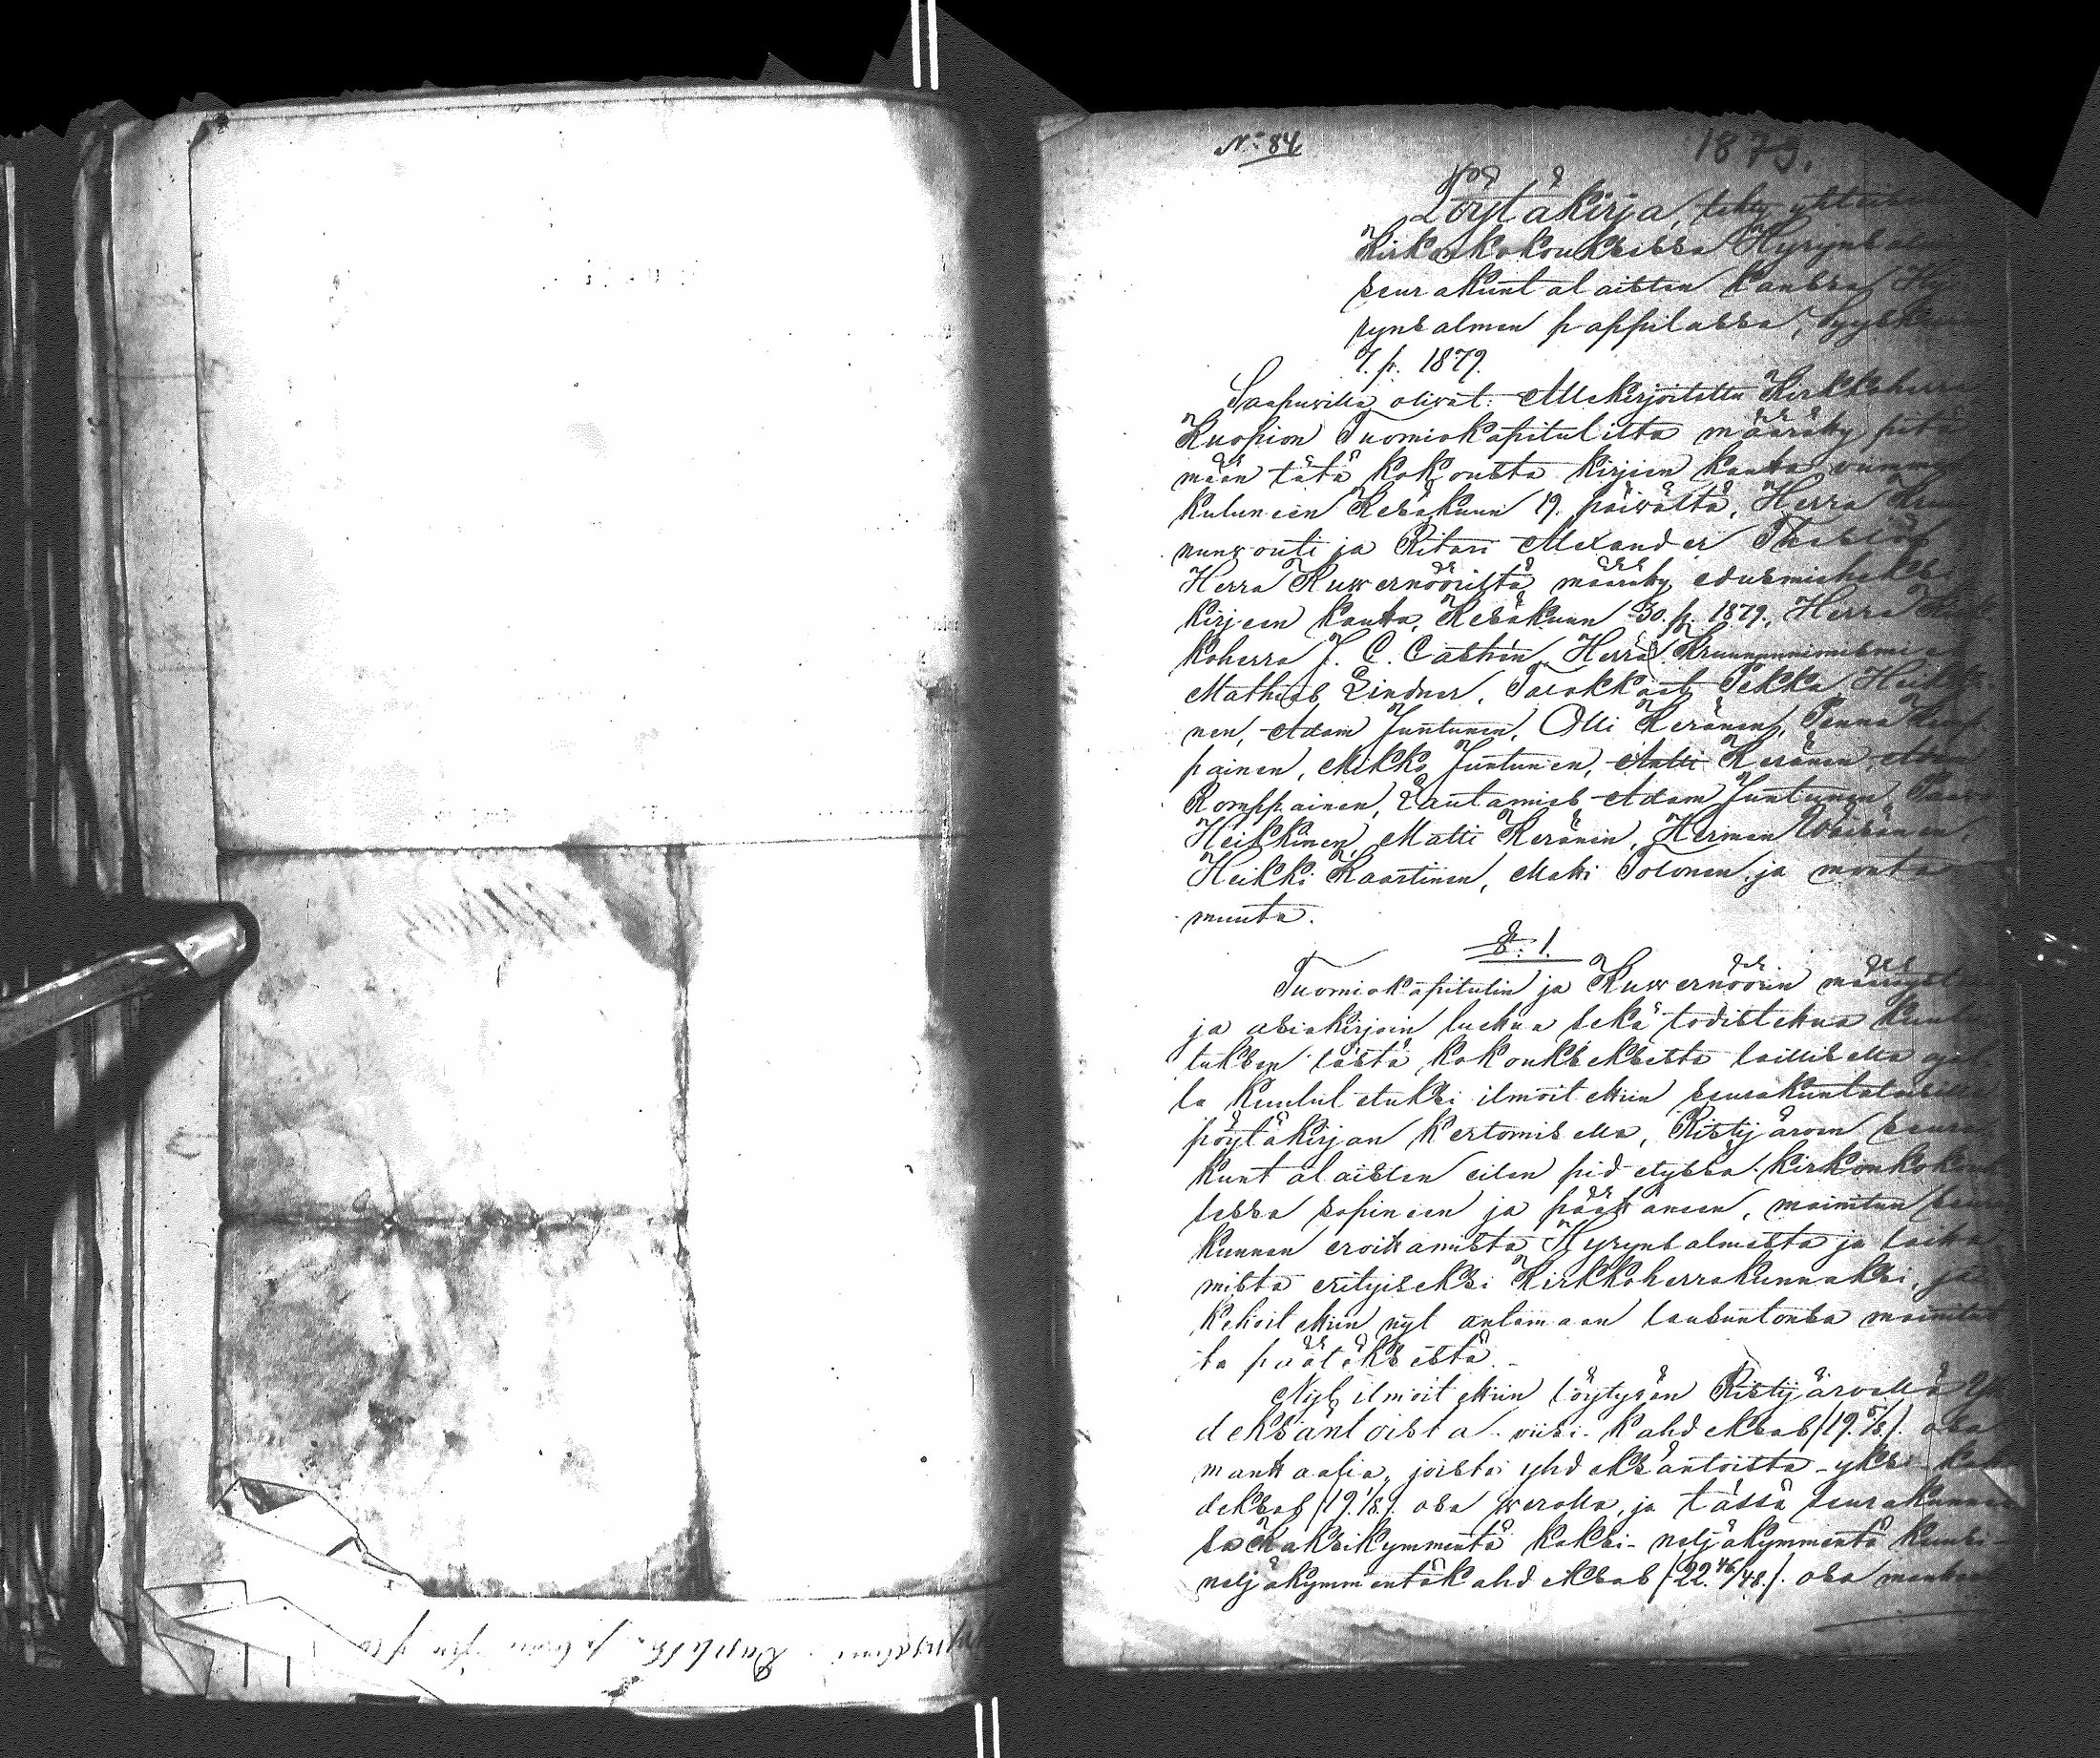 No 84
1879.
Pöytäkirja, tehty yhteisessä
Kirkonkokouksessa Hyrynsal
seurakuntalaisten kanssa Hy
rynsalmen pappilassa, Syyskuun
7. p. 1879.
Saapuvilla olivat: Allekirjoitettu Kirkkoherra
Kuopion Tuomiokapitulilta määrätty pitä
mään tätä kokousta kirjeen kautta viimmeksi
kuluneen Kesäkuun 19. päivältä, Herra Kruu
nunvouti ja Ritari Alexander
Herra Kuvernööriltä määrätty edusmieheksi
kirjeen kautta, Kesäkuun 30. p. 1879., Herra Kirk
koherra J. C. Castrén, Herra Kruununnimismies
Mathias Lindner, Talokkaat Pekka Heikki
nen, Adam Juntunen, Olli Keränen, Komp
painen, Mikko Juntunen, Antti Keränen, Adam
Romppainen, Lautamies Adam Juntunen,
Heikkinen, Matti Keränen, Herman Väisänen,
Heikki Kaartinen, Matti Tolonen ja monta
muuta.
§. 1.
Tuomiokapitulin ja Kuvernöörin määräykset
ja asiakirjain luettua sekä todistettua kuulu
tuksen tästä kokouksesta laillisella ajal
la kuulutetuksi ilmoitettiin seurakuntalaisille
pöytäkirjan kertomisella, Ristijärven seura
kuntalaisten eilen pidetyssä kirkonkokouk
sessa sopineen ja päättäneen, mainitun seura
kunnan eroittamista Hyrynsalmesta ja laitta
mista erityiseksi Kirkkoherrakunnaksi, ja
kehoitettiin nyt antamaan lausuntonsa mainitus
ta päätöksestä.
Nyt ilmoitettiin löytyvän Ristijärvellä Yh
deksäntoista viisi-kahdeksas (19.5/8). osa
manttaalia, joista yhdeksäntoista-yksi-kah
deksas (19.1/8). osa verolla, ja tässä seurakunnas
sa Kaksikymmentä kaksi-neljäkymmentä kuusi-
neljäkymmentäkahdeksas (22.46/48.). osa manttaa